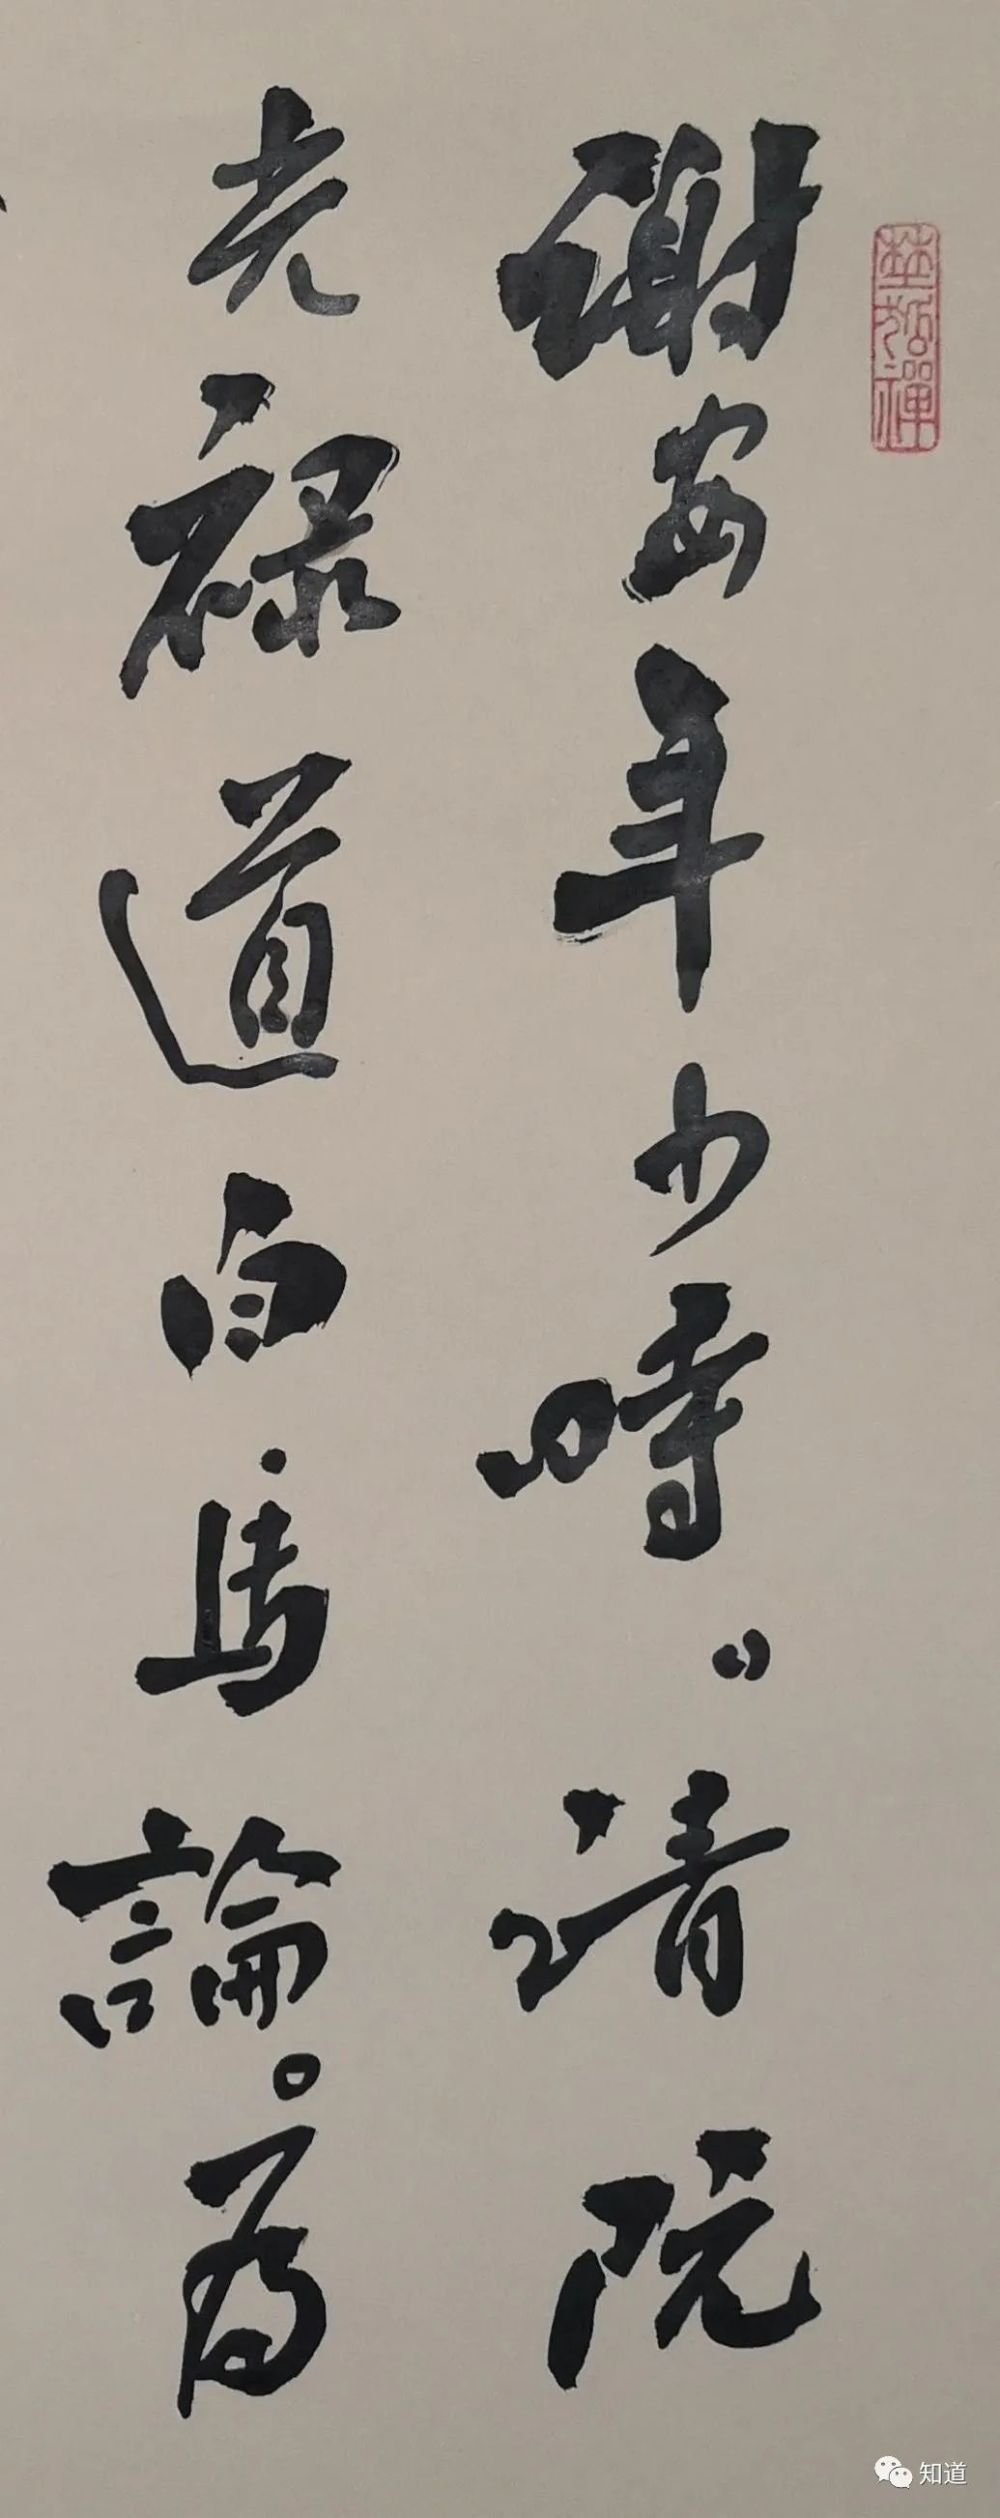 謝安年少時。請阮
光禄道白馬論。為
知道